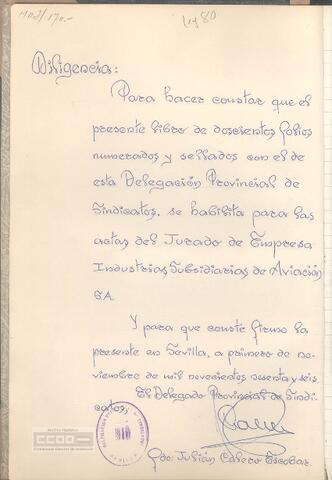 Diligencia:
Para hacer constar que el
presente libro de doscientos folios
numerados y sellados con el de
esta Delegación Provincial de
Sindicatos, se habilita para las
actas del Jurado de Empresa
Industrias Subsidiarias de Aviación
S.A.
Y para que conste firmo la
presente en Sevilla, a primero de no-
viembre de mil novecientos sesenta y seis.
El Delegado Provincial de Sindi-
catos,
CCOO
Fdo. Julián Calero Escobar.